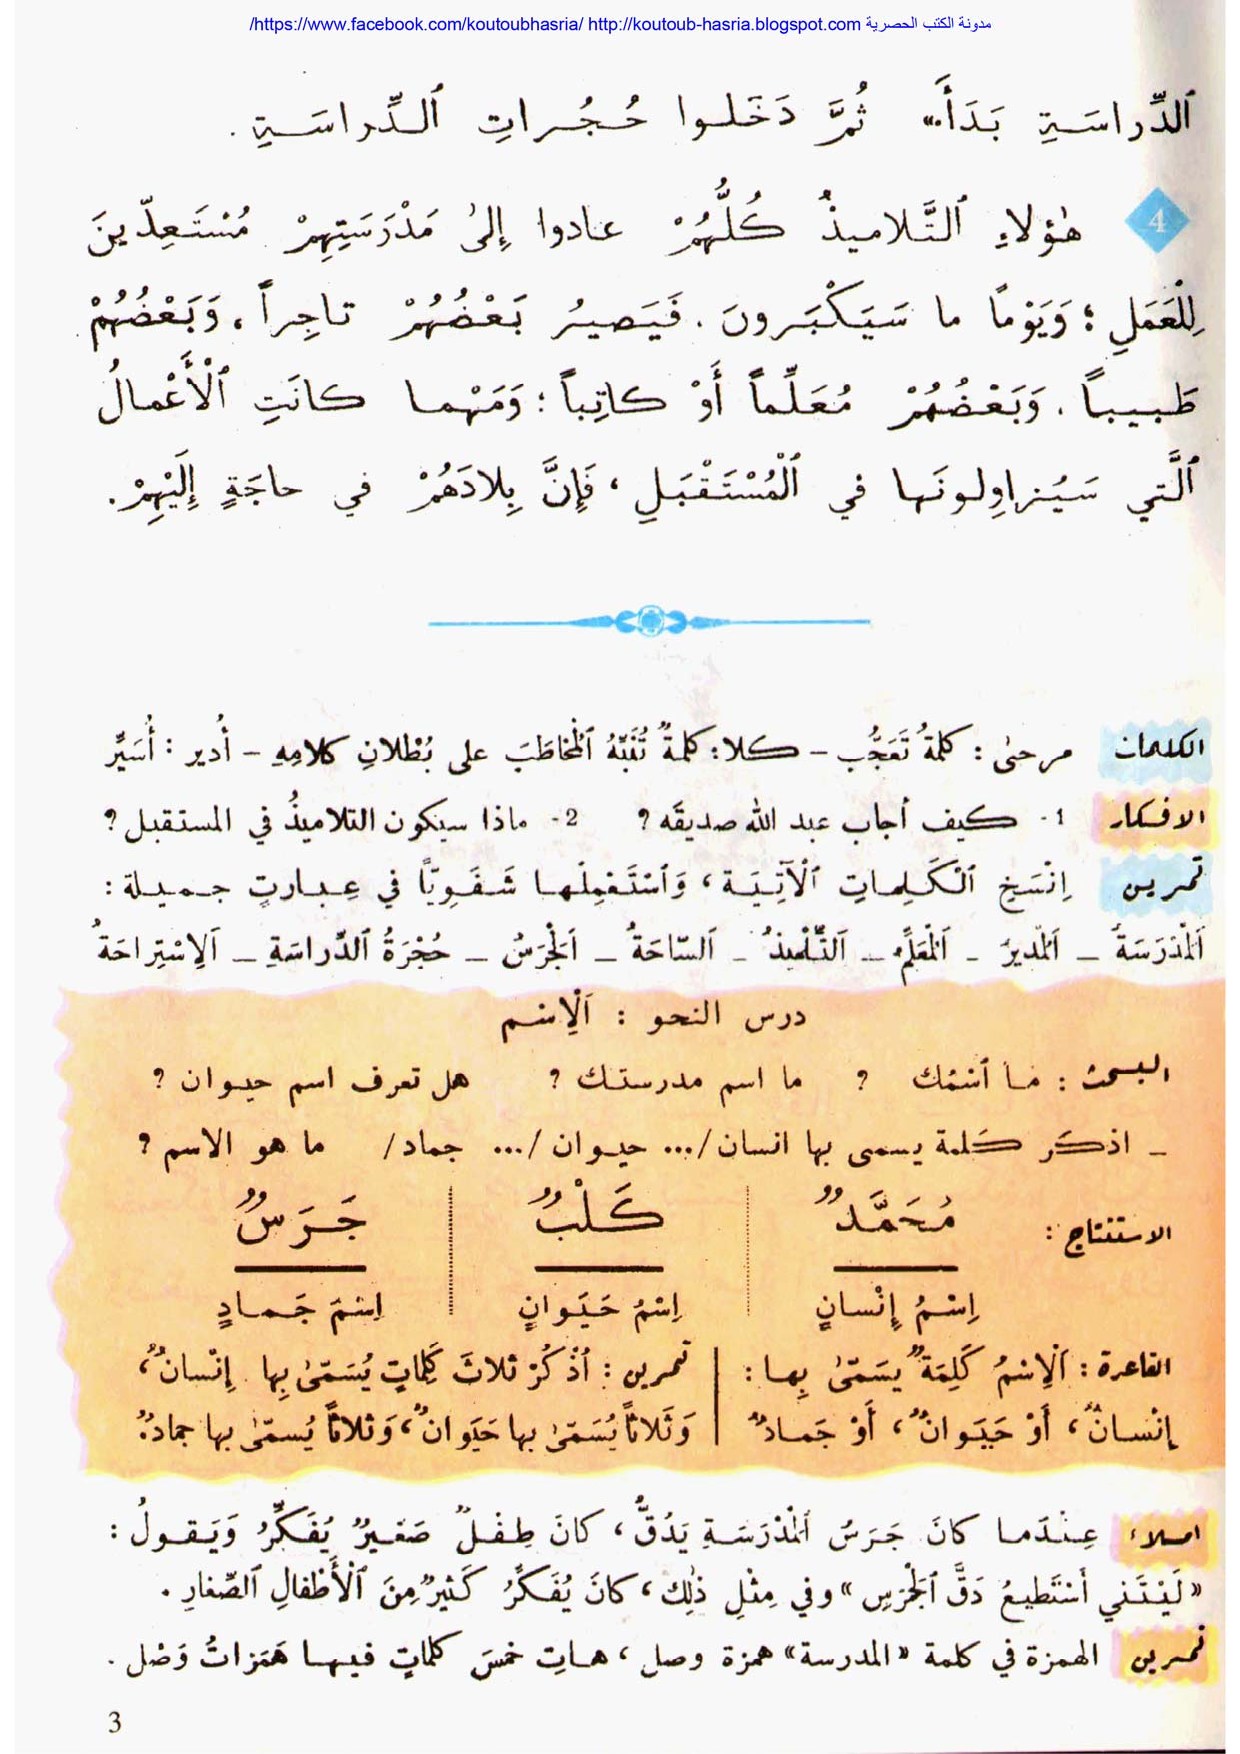 https://www.facebook.com/koutoubhasria/ http://koutoub-hasria.blogspot.com مدونة الكتب الحصرية/
ٱلدِّراسَـةِ بَدَأَ.» ثُمَّ دَخَلـوا حُجُـراتِ ٱلـدِّراسَـةِ .
4 هٰؤلاءِ ٱلتَّلاميذُ كُلُّهُمْ عـادوا إِلىٰ مَدْرَسَتِهِمْ مُسْتَعِدّينَ
لِلْعَمَلِ ؛ وَيَوْماً ما سَيَكْبَـرونَ . فَيَصيـرُ بَعْضُهُمْ تاجِراً ، وَبَعْضُهُمْ
طَبـيبـاً . وَبَعْضُهُمْ مُعَلِّماً أَوْ كاتِباً ؛ وَمَهْمـا كانَتِ ٱلْأَعْمالُ
ٱلَّتي سَيُزاوِلـونَهـا في ٱلْمُسْتَقْبَلِ ، فَإِنَّ بِلادَهُمْ في حاجَةٍ إِلَيْهِمْ .
الكلمات مرحىٰ : كلمةُ تَعَجُّب – كـلا : كلمةٌ تُنَبِّهُ ٱلْمُخاطَبَ على بُطْلانِ كلامِهِ – أُدير : أُسَيِّر
الافـكار 1 - كـيف أجاب عبد الله صديقَه ؟ 2 - ماذا سيكون التلاميذُ في المستقبل ؟
تمـريـن اِنْسَخِ ٱلْكَـلِمـاتِ ٱلْآتِيَـة ، وَٱسْتَعْمِلْهـا شَفَوِيّاً في عِـبـارتٍ جـميـلة :
اَلْمَدْرَسَةُ – اَلْمُديرُ – اَلْمُعَلِّمُ – اَلتِّلْميذُ – اَلسّاحَةُ – اَلْجَرَسُ – حُجْرَةُ ٱلدِّراسَةِ – اَلِاسْتِراحَةُ
درس النحو : اَلْاِسْـم
البـحث : مـا ٱسْمُك ؟ ما اسم مدرستـك ؟ هل تعرف اسم حيـوان ؟
– اذكَـر كَـلمة يسمى بها انسان /... حيـوان /... جماد/ ما هو الاسم ؟
الاستنتاج : مُحَمَّدٌ كَـلْبٌ جَـرَسٌ
اِسْمُ إِنْسانٍ اِسْمُ حَيَـوانٍ اِسْمُ جَـمـادٍ
القاعدة : اَلْاِسْمُ كَلِمَةٌ يُسَمّىٰ بِهـا : تمرين : اُذْكُرْ ثلاثَ كَلِماتٍ يُسَمّىٰ بِها إِنْسانٌ ،
إِنْسـانٌ ، أَوْ حَيَـوانٌ ، أَوْ جَمـادٌ وَثَلاثاً يُسَمّىٰ بها حَيَوانٌ ، وَثلاثاً يُسمّىٰ بها جمادٌ .
امـلاء عِـنْدَمـا كانَ جَرَسُ ٱلْمَدْرَسَةِ يَدُقُّ ، كانَ طِفْـلٌ صَغيـرٌ يُفَكِّرُ وَيَـقـولُ :
« لَيْتَـني أَسْتَطيعُ دَقَّ ٱلْجَرَسِ » وفي مِثْلِ ذٰلِكَ ، كانَ يُفَكِّرُ كَثيرٌ مِنَ ٱلْأَطْفالِ ٱلصِّغارِ .
تمـرين الهمزة في كلمة « المدرسة » همزة وصل ، هـاتِ خمسَ كلماتٍ فيـهـا هَمَزاتُ وَصْل .
3